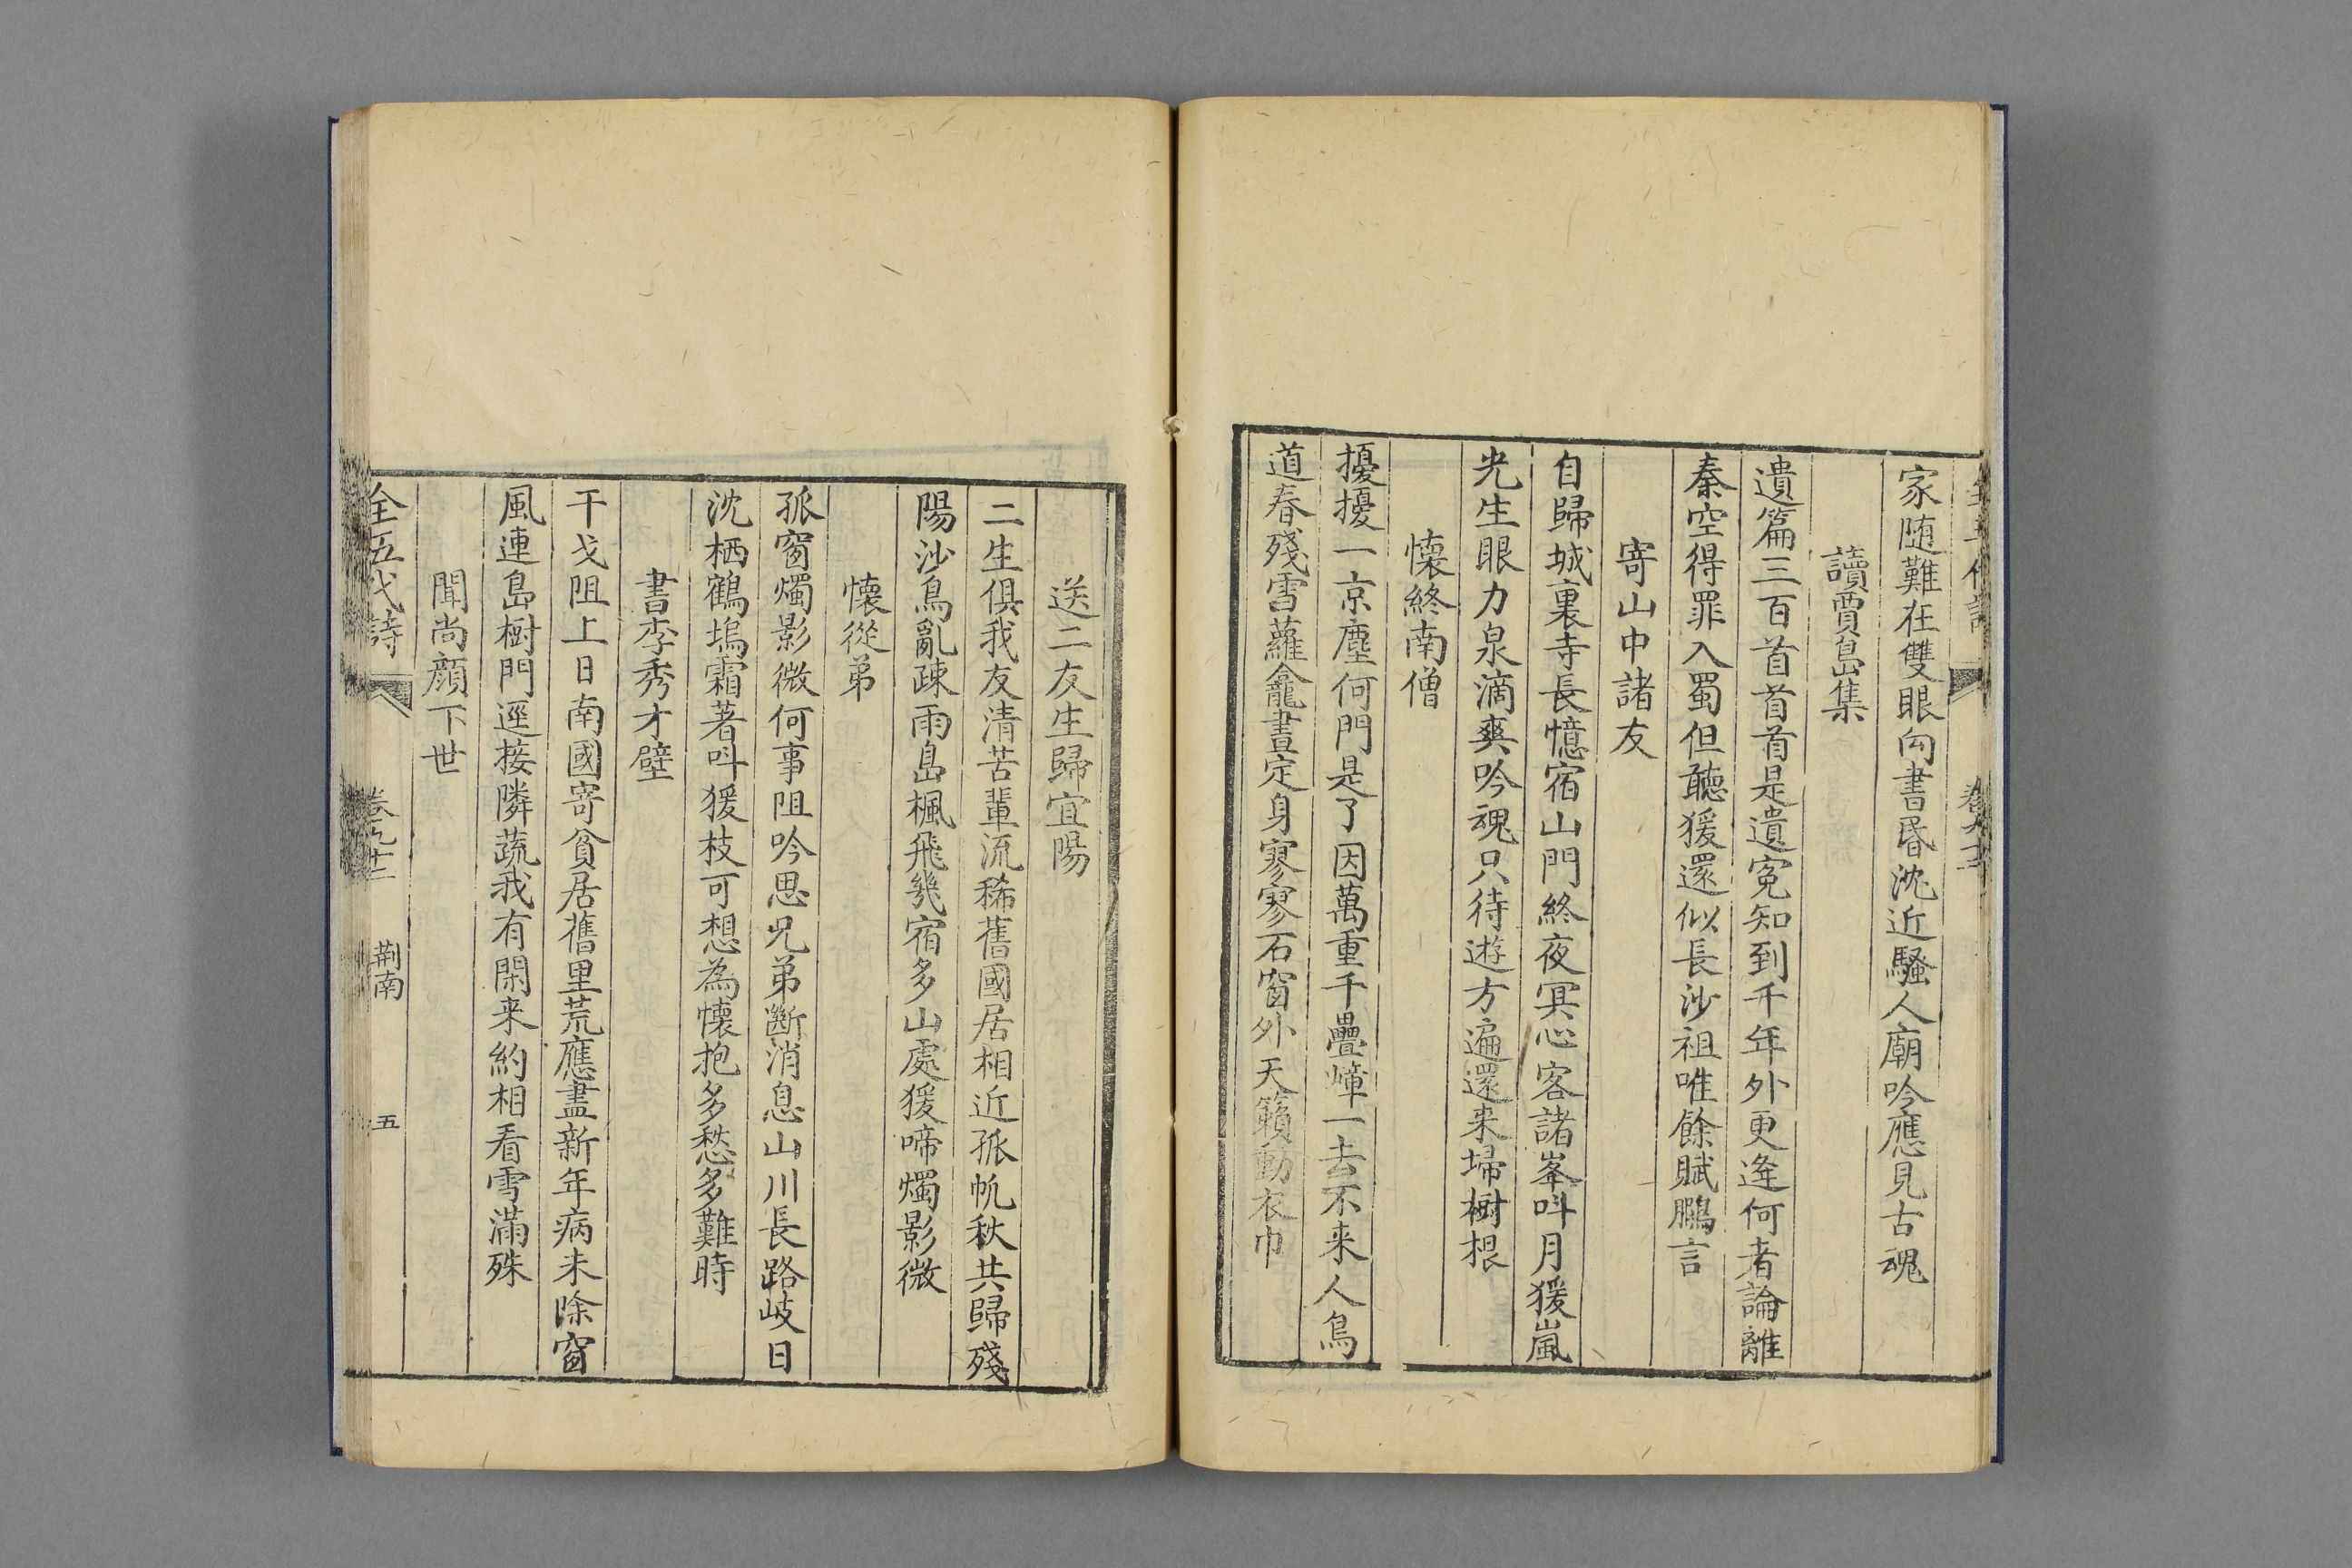 家随難在雙眼向書昏沈近騷人廟吟應見古魂
讀賈島集
遺篇三百首首首是遺寃知到千年外更逢何者論離
秦空得罪入蜀但聽猨還似長沙祖唯餘賦鵬言
寄山中諸友
自歸城裏寺長憶宿山門終夜冥心客諸峯呌月猨嵐
光生眼力泉滴爽吟魂只待遊方遍還来埽樹根
懷終南僧
擾擾一京塵何門是了因萬重千疊嶂一去不来人鳥
道春殘雪蘿龕晝定身寥寥石窗外天籟動衣巾
送二友生歸宜陽
二生俱我友清苦輩流稀舊國居相近孤帆秋共歸殘
陽沙鳥亂疎雨島楓飛幾宿多山處猨啼燭影微
懷從弟
孤窗燭影微何事阻吟思兄弟斷消息山川長路岐日
沈栖鶴塢霜著呌猨枝可想為懷抱多愁多難時
書李秀才壁
干戈阻上日南國寄貧居舊里荒應盡新年病未除窗
風連島樹門逕接隣蔬我有閑来約相看雪滿殊
聞尚顏下世
全五代詩
荆南
五